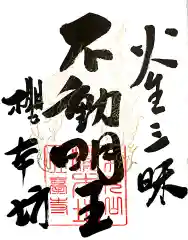 火生三昧
不動明王
櫻本坊